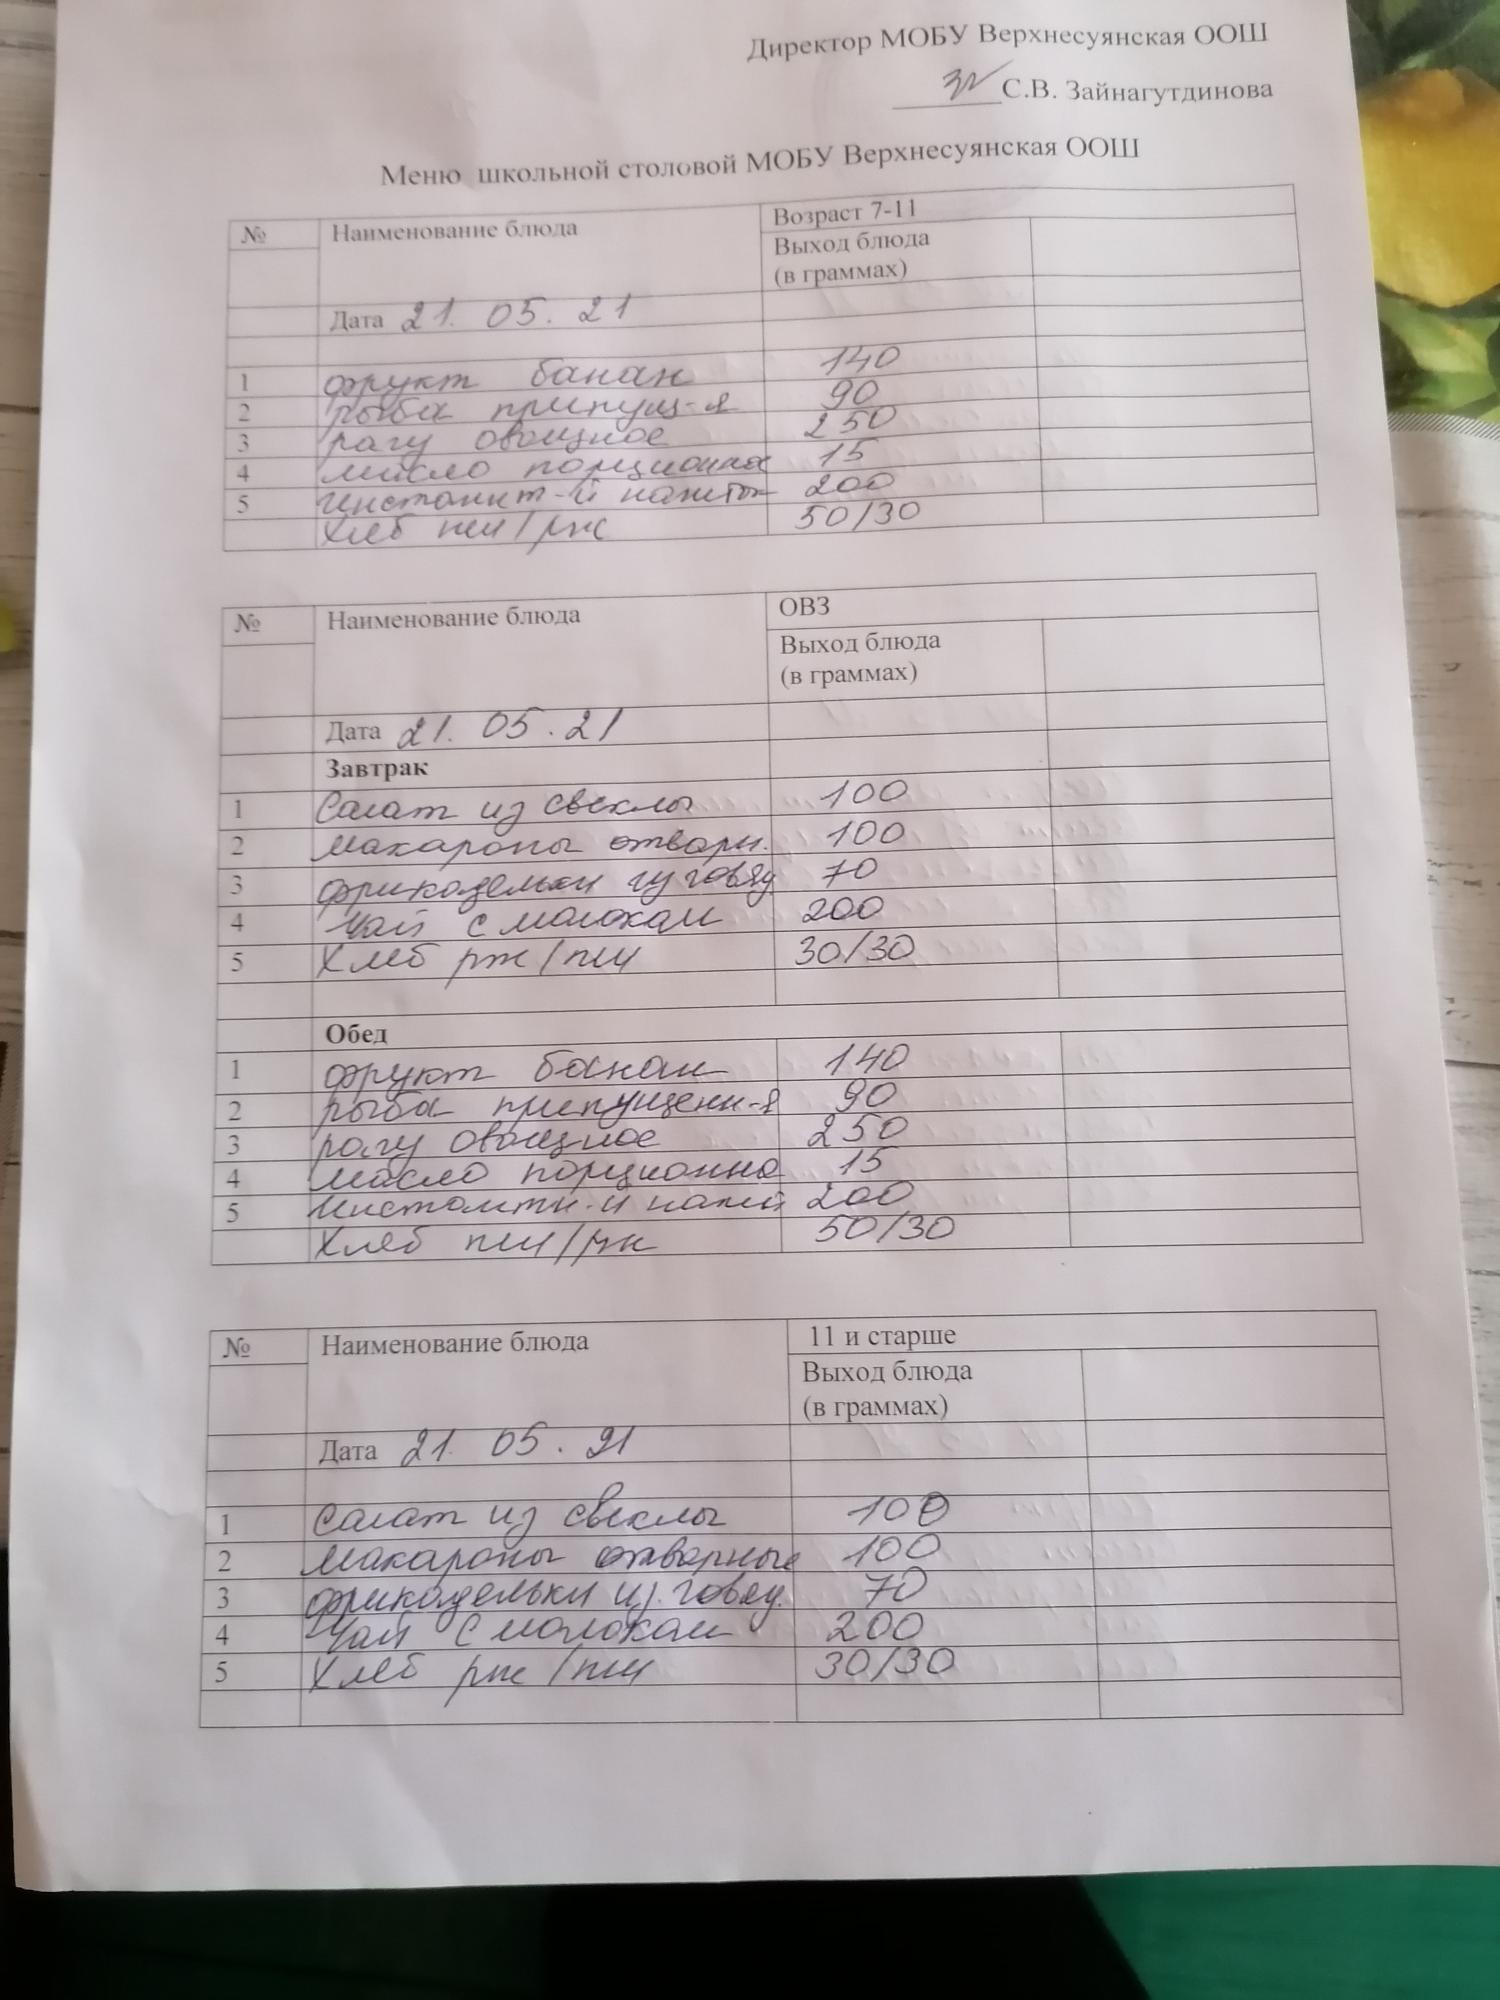 Директор МОБУ Верхнесуянская ООШ
С.В. Зайнагутдинова
Меню школьной столовой МОБУ Верхнесуянская ООШ
№ Наименование блюда Возраст 7-11
Выход блюда
(в граммах)
Дата 21. 05. 21
1 фрукт банан 140
2 рыба припущ-я 90
3 рагу овощное 250
4 масло порционное 15
5 инстант-й напиток 200
Хлеб пш/рж 50/30
№ Наименование блюда ОВЗ
Выход блюда
(в граммах)
Дата 21. 05. 21
Завтрак
1 Салат из свеклы 100
2 макароны отварн. 100
3 фрикадельки из говяд. 70
4 Чай с молоком 200
5 Хлеб рж/пш 30/30
Обед
1 фрукт банан 140
2 рыба припущенн-я 90
3 рагу овощное 250
4 масло порционно 15
5 200
Хлеб пш/рж 50/30
№ Наименование блюда 11 и старше
Выход блюда
(в граммах)
Дата 21. 05. 21
1 Салат из свеклы 100
2 макароны отварные 100
3 фрикадельки из говяд. 70
4 Чай с молоком 200
5 Хлеб рж/пш 30/30